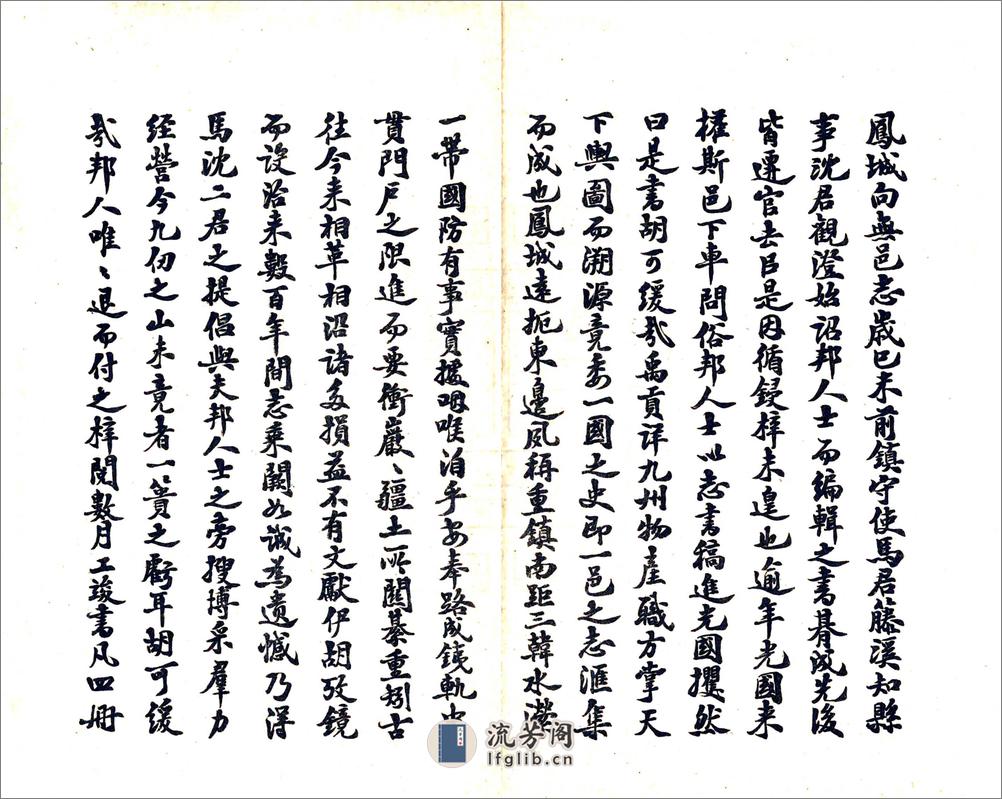 鳳城向無邑志歲己未前鎮守使馬君籐溪知縣
事沈君觀澄始詔邦人士而編輯之書朞成先後
皆遷官去自是因循鋟梓未遑也逾年光國來
權斯邑下車問俗邦人士以志書稿進光國矍然
曰是書胡可緩哉禹貢詳九州物產職方掌天
下輿圖而溯源竟委一國之史即一邑之志滙集
而成也鳳城遠扼東邊夙稱重鎮南距三韓水瀠
一帶國防有事實據咽喉洎乎安奉路成鐵軌
貫門戶之限進而要衝巖〻疆土所關綦重矧古
往今來相革相沿諸多損益不有文獻伊胡攷鏡
而設治來數百年間志乘闕如誠為遺憾乃得
馬沈二君之提倡與夫邦人士之旁搜博采羣力
經營今九仞之山未竟者一簣之虧耳胡可緩
哉邦人唯〻退而付之梓閱數月工竣書凡四冊
流芳阁
lfglib.cn